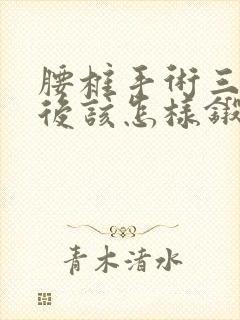 腰椎手術三
後該怎樣鍛
青木清水